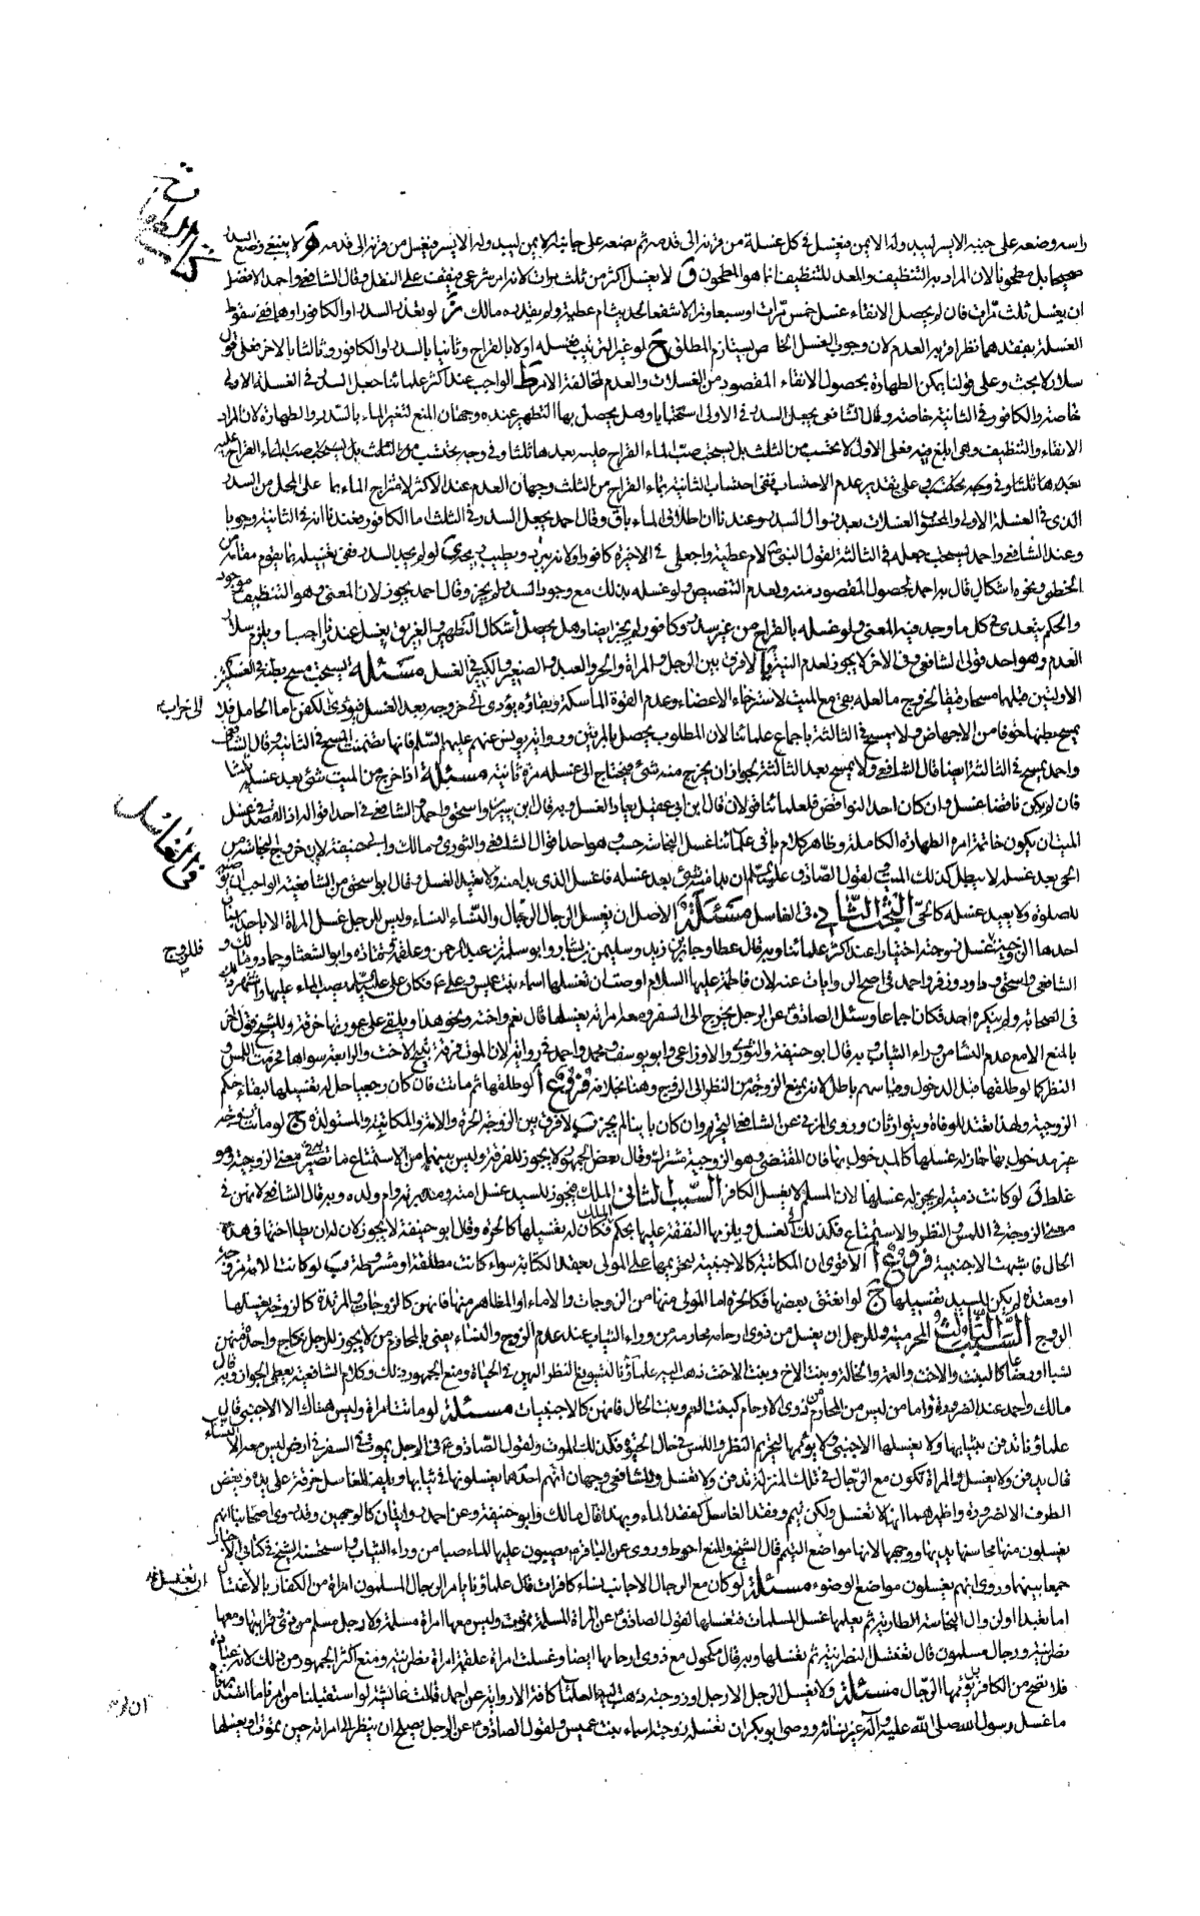 راسه وضعه على جنبه الايسر ليبدو له الايمن فيغسل في كل غسلة من قرنه الى قدمه ثم يضعه على جانبه الايمن ليبدو له الايسر فيغسل من قرنه الى قدمه لا ينبغي وضع السدر
صحيحا بل مطحونا لان المراد به التنظيف والمعد للتنظيف انما هو المطحون ق لا يغسل اكثر من ثلث مرات لانه امر شرعي فيقف على النقل وقال الشافعي واحمد الافضل
ان يغسل ثلث مرات فان لم يحصل الانقاء غسل خمس مرات او سبعا وتر الا شفعا لحديث ام عطية ولم يقدره مالك ز لو تعذر السدر او الكافور او هما ففي سقوط
الغسلة بفقدهما نظر اقربه العدم لان وجوب الغسل الخاص يستلزم المطلق ح لو غير الترتيب فغسله اولا بالقراح وثانيا بالسدر او الكافور وثالثا بالاخر فعلى قول
سلار لا بحث وعلى قولنا يمكن الطهارة بحصول الانقاء المقصود من الغسلات والعدم لمخالفة الامر ط الواجب عند اكثر علمائنا جعل السدر في الغسلة الاولى
خاصة والكافور في الثانية خاصة وقال الشافعي يجعل السدر في الاولى استحبابا وهل يحصل بها التطهير عنده وجهان المنع لتغير الماء بالسدر والطهارة لان المراد
الانقاء والتنظيف وهي ابلغ فيه فعلى الاول لا يحتسب من الثلث بل يستحب صب الماء القراح عليه بعدها ثلثا وفي وجه يحتسب من الثلث بل يستحب صب الماء القراح عليه
بعدها ثلثا وفي وجه وعلى تقدير عدم الاحتساب ففي احتساب الثانية بماء القراح من الثلث وجهان العدم عند الاكثر لامتزاج الماء بما على المحل من السدر
الذي في الغسلة الاولى والمحسوب الغسلات بعد زوال السدر وعندنا ان اطلاق الماء باق وقال احمد يجعل السدر في الثلث اما الكافور فعندنا انه في الثانية وجوبا
وعند الشافعي واحمد يستحب جعله في الثالثة لقول النبي لام عطية واجعلي في الاخرة كافورا ولانه يبرد ويطيب لو لم يجد السدر ففي تغسيله بما يقوم مقامه من
الخطمي ونحوه اشكال قال به احمد لحصول المقصود منه ولعدم التنصيص ولو غسله بذلك مع وجود السدر لم يجز وقال احمد يجوز لان المعنى وهو التنظيف موجود
والحكم يتعدى في كل ما وجد فيه المعنى ولو غسله بالقراح من غير سدر وكافور لم يجز ايضا وهل يحصل اشكال التطهير الغريق يغسل عندنا واجبا ويلزم سلار
العدم وهو احد قولي الشافعي وفي الاخر لا يجوز لعدم النية لا فرق بين الرجل والمراة والحر والعبد والصغير والكبير في الغسل مسئلة يستحب مسح بطنه في الغسلتين
الاوليين قبلهما مسحا رفيقا لخروج ما لعله بقي مع الميت لاسترخاء الاعضاء وعدم القوة الماسكة وبقاؤه يؤدي الى خروجه بعد الغسل فيؤذي الكفن اما الحامل فلا
يمسح بطنها خوفا من الاجهاض ولا يمسح في الثالثة باجماع علمائنا لان المطلوب يحصل بالمرتين وبرواية يونس عنهم عليهم السلم فانها تضمنت المسح في الثانية وقال الشافعي
واحمد يمسح في الثالثة ايضا قال الشافعي ولا يمسح بعد الثالثة لجواز ان يخرج منه شئ فيحتاج الى غسله مرة ثانية مسئلة اذا خرج من الميت شئ بعد غسله ثلثا
فان لم يكن ناقضا غسل وان كان احد النواقض فلعلمائنا قولان قال ابن ابي عقيل يعاد الغسل وبه قال ابن سيرين واسحق واحمد والشافعي في احد اقواله اذ القصد في غسل
الميت ان يكون خاتمة امره الطهارة الكاملة وظاهر كلام باقي علمائنا غسل النجاسة حسب وهو احد اقوال الشافعي والثوري ومالك وابي حنيفة لان خروج النجاسة من
الحي بعد غسله لا يبطل كذلك الميت لقول الصادق عليه السلم ان بدا منه شئ بعد غسله فاغسل الذي بدا منه ولا تعيد الغسل وقال ابو اسحق من الشافعية الواجب ان يوضا
للصلوة ولا يعيد غسله كالحي البحث الثاني في الغاسل مسئلة الاصل ان يغسل الرجال الرجال والنساء النساء وليس للرجل غسل المراة الا باحد اسباب
احدها الزوجية غسل زوجته اختيارا عند اكثر علمائنا وبه قال عطا وجابر بن زيد وسليمن بن يسار وابو سلمة بن عبد الرحمن وعلقمة وقتادة وابو الشعثا وحماد ومالك و
الشافعي واسحق وداود وزفر واحمد في اصح الروايات عنه لان فاطمة عليها السلام اوصت ان تغسلها اسماء بنت عميس وعلي ع فكان علي عليه السلم يصب الماء عليها واشتهر ذلك
في الصحابة ولم ينكره احد فكان اجماعا وسئل الصادق عن الرجل يخرج الى السفر ومعه امراته يغسلها قال نعم واخته ونحو هذا ويلقي على عورتها خرقة وللشيخ قول اخر
بالمنع الا مع عدم النساء من وراء الثياب وبه قال ابو حنيفة والثوري والاوزاعي وابو يوسف ومحمد واحمد في رواية لان الموت فرقة تبيح الاخت والرابعة سواها فحرمت اللمس و
النظر كما لو طلقها قبل الدخول وقياسهم باطل لانه يمنع الزوجة من النظر الى الزوج وهنا بخلافه فروع ا لو طلقها ثم ماتت فان كان رجعيا حل له تغسيلها لبقاء حكم
الزوجية ولهذا تعتد للوفاة ويتوارثان وروى المزني عن الشافعي التحريم وان كان باينا لم يجز ب لا فرق بين الزوجة الحرة والامة والمكاتبة والمستولدة ج لو ماتت زوجة
غير مدخول بها جاز له غسلها كالمدخول بها فان المقتضي وهو الزوجية مشترك وقال بعض الجمهور لا يجوز للفرقة وليس بينهما من الاستمتاع ما تصير به في معنى الزوجية وهو
غلط لو كانت ذمية لم يجز له غسلها لان المسلم لا يغسل الكافر السبب الثاني الملك يجوز للسيد غسل امته ومدبرته وام ولده وبه قال الشافعي لانهن في
معنى الزوجة في اللمس والنظر والاستمتاع فكذلك في الغسل ويلزمها النفقة عليها بحكم الملك فكان له تغسيلها كالحرة وقال ابو حنيفة لا يجوز لان له ان يطا اختها في هذه
الحال فاشبهت الاجنبية فروع ا الاقوى ان المكاتبة كالاجنبية لتحريمها على المولى بعقد الكتابة سواء كانت مطلقة او مشروطة ب لو كانت الامة مزوجة
او معتدة لم يكن للسيد تغسيلها ج لو اعتق بعضها فكالحرة اما المولى منها من الزوجات والاماء او المظاهر منها فانهن كالزوجات والمرتدة كالزوجة يغسلها
الزوج السبب الثالث المحرمية وللرجل ان يغسل من ذوي ارحامه محارمه من وراء الثياب عند عدم الزوج والنساء يعني بالمحارم من لا يجوز للرجل نكاح واحدة منهن
نسبا او رضاعا كالبنت والاخت والعمة والخالة وبنت الاخ وبنت الاخت ذهب اليه علماؤنا لتسويغ النظر اليهن في الحياة ومنع الجمهور ذلك وكلام الشافعية يعطي الجواز وبه قال
مالك واحمد عند الضرورة واما من ليس من المحارم من ذوي الارحام كبنت العم وبنت الخال فانهن كالاجنبيات مسئلة لو ماتت امراة وليس هناك الا الاجنبي قال
علماؤنا تدفن بثيابها ولا يغسلها الاجنبي ولا يؤممها لتحريم النظر واللمس في حال الحيوة فكذلك الموت ولقول الصادق ع في الرجل يموت في السفر في ارض ليس معه الا النساء
قال يدفن ولا يغسل والمراة تكون مع الرجال في تلك المنزلة تدفن ولا تغسل وللشافعي وجهان احدهما يغسلونها في ثيابها ويلف الغاسل خرقة على يده ويغض
الطرف الا لضرورة واظهرهما انها لا تغسل ولكن تيمم وفقد الغاسل كفقد الماء وبهذا قال مالك وابو حنيفة وعن احمد روايتان كالوجهين وقد روى اصحابنا انهم
يغسلون منها محاسنها يديها ووجهها لانها مواضع التيمم قال الشيخ والمنع احوط وروى عن الباقر ع يصبون عليها الماء صبا من وراء الثياب واستحسنه الشيخ في كتابي الاخبار
جمعا بينهما وروى انهم يغسلون مواضع الوضوء مسئلة لو كان مع الرجال الاجانب نساء كافرات قال علماؤنا يامر الرجال المسلمون امراة من الكفار بالاغتسال
اما تعبدا او لزوال النجاسة الطارية ثم يعلمها غسل المسلمات فتغسلها لقول الصادق ع عن المراة المسلمة تموت وليس معها امراة مسلمة ولا رجل مسلم من ذوي قرابتها ومعها
نصرانية ورجال مسلمون قال تغتسل النصرانية ثم تغسلها وبه قال مكحول مع ذوي ارحامها ايضا وغسلت امراة علقمة امراة نصرانية ومنع اكثر الجمهور من ذلك لانه عبادة
فلا تصح من الكافر بل يؤممها الرجال مسئلة ولا يغسل الرجل الا رجل او زوجته ذهب اليه العلماء كافة الا رواية عن احمد قالت عائشة لو استقبلنا من امرنا ما استدبرنا
ما غسل رسول الله صلى الله عليه وآله غير نسائه ووصى ابو بكر ان تغسله زوجته اسماء بنت عميس ولقول الصادق ع عن الرجل يصلح ان ينظر الى امراته حين تموت او يغسلها
كتاب الطهارة
في الغاسل
فللزوج
ان تغتسل